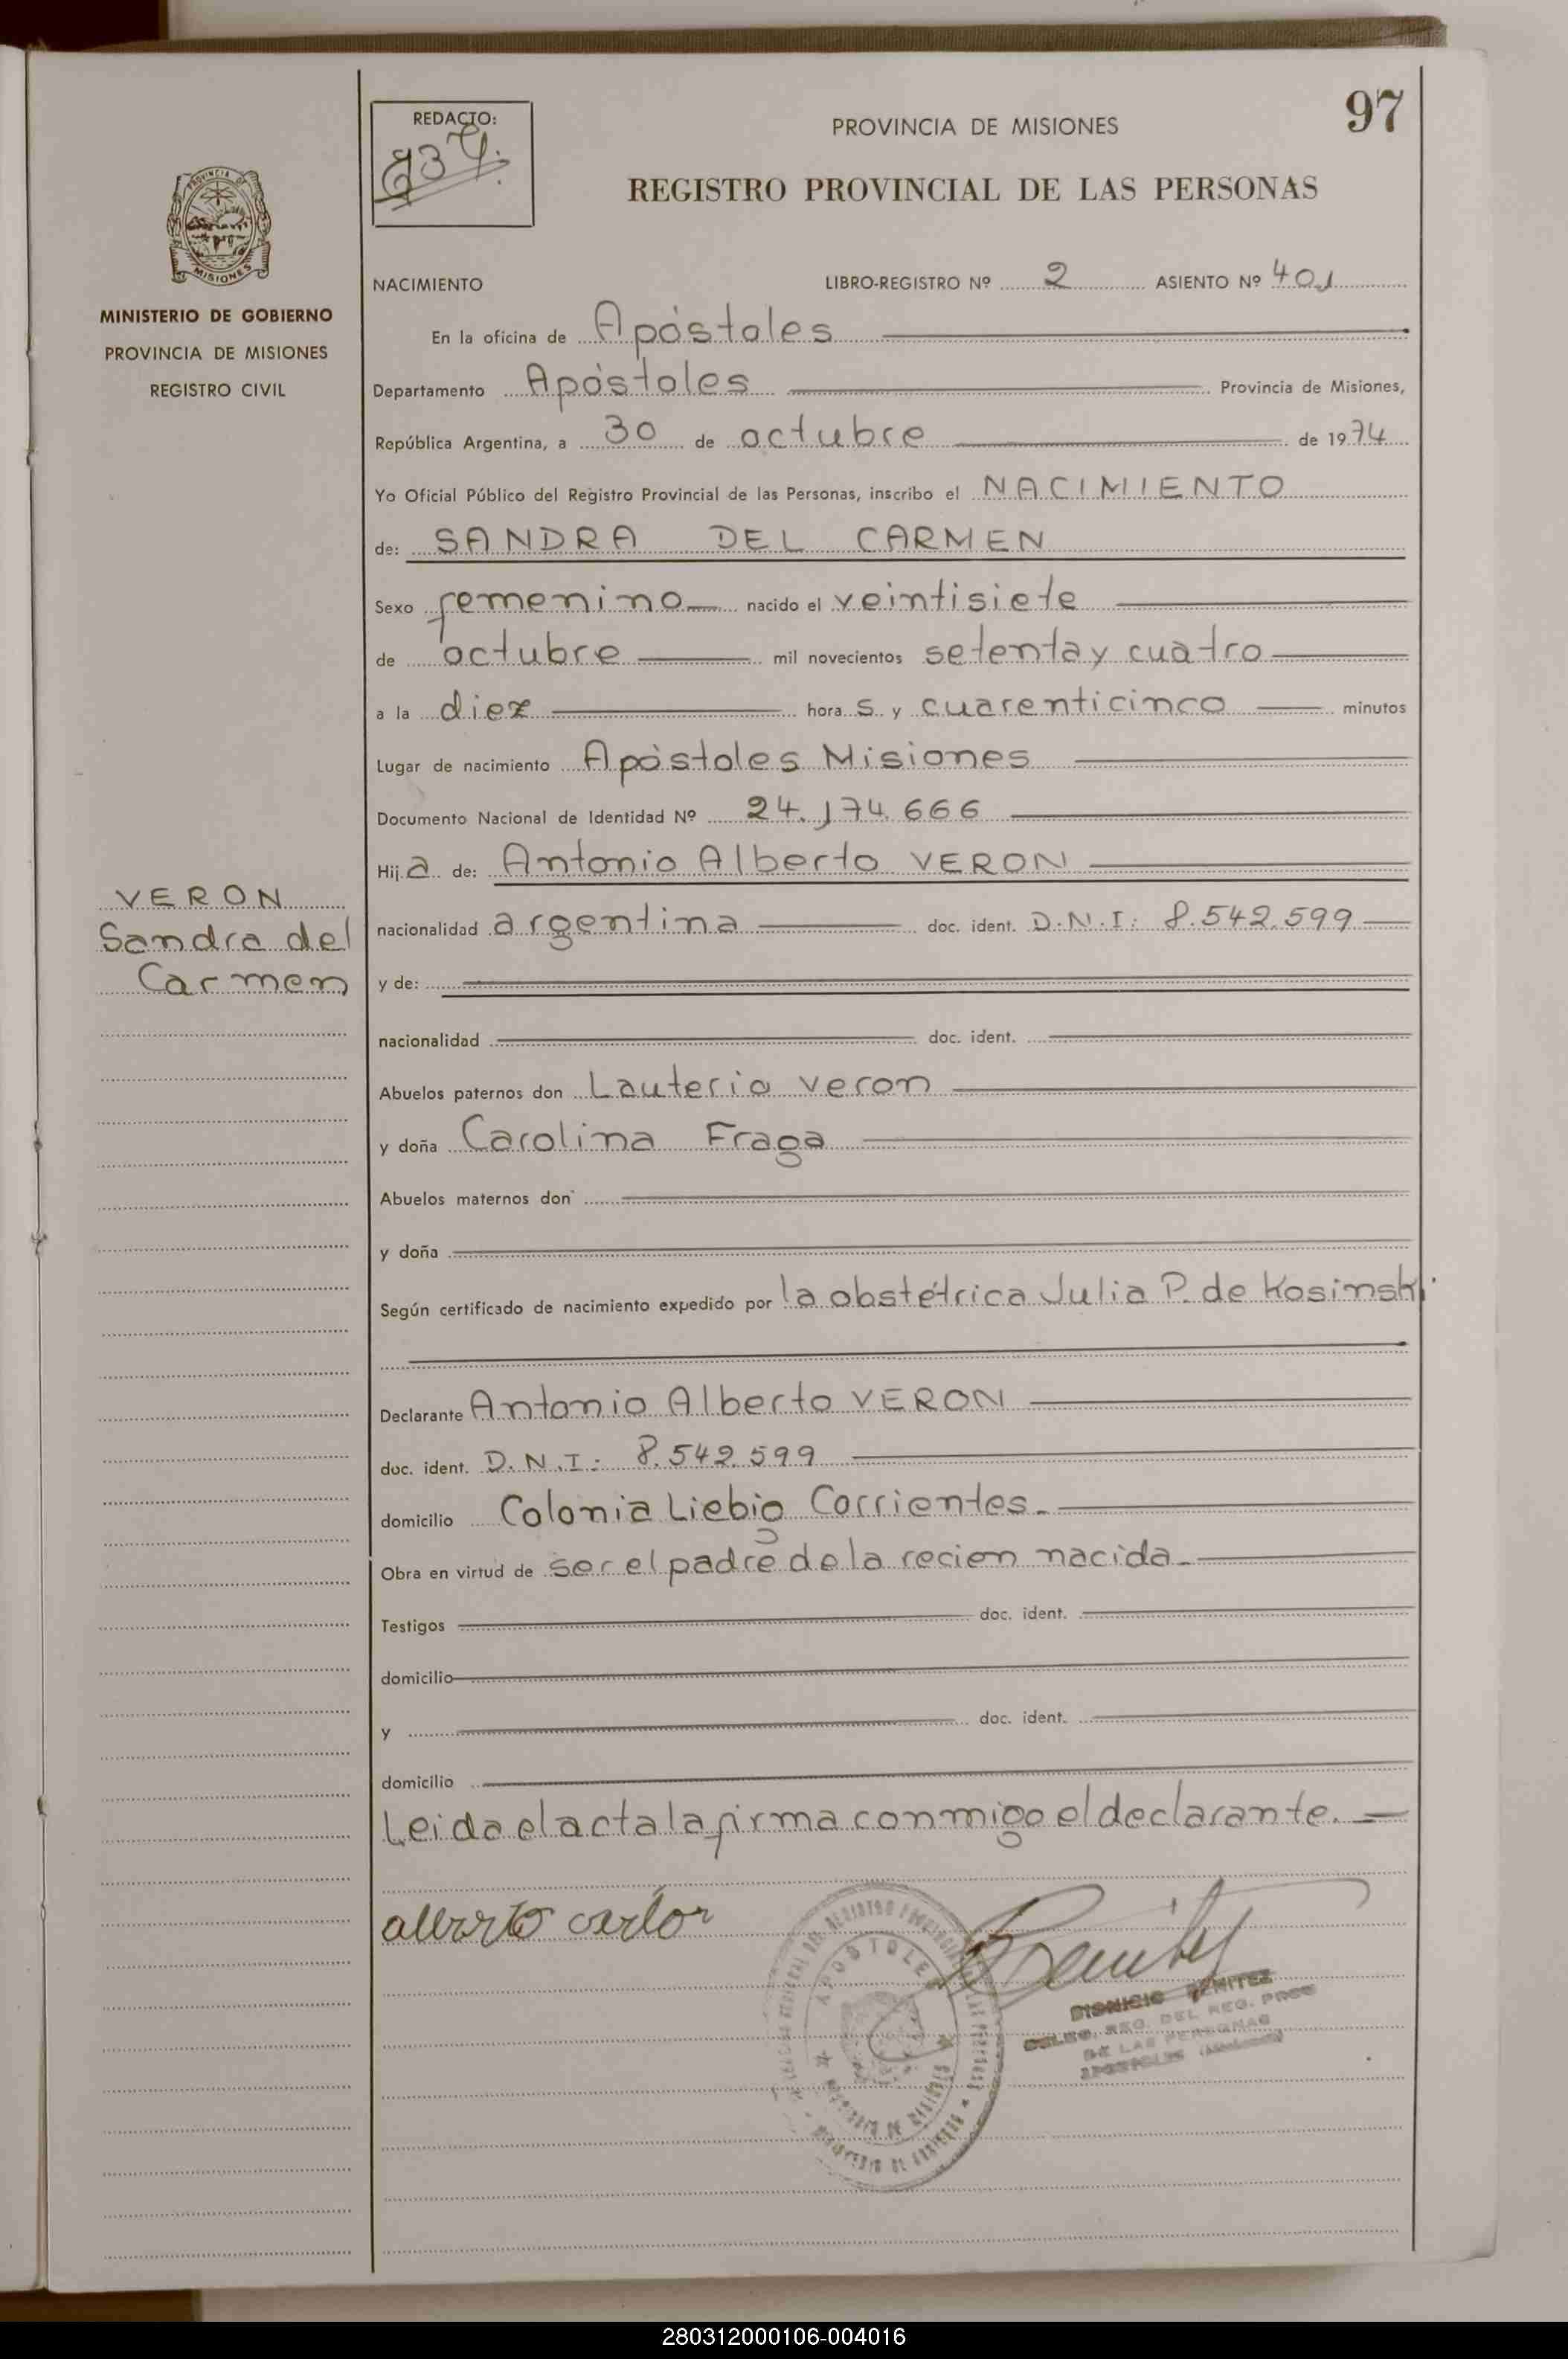 97
REDACTO:
PROVINCIA DE MISIONES
REGISTRO PROVINCIAL DE LAS PERSONAS
PROVINCIA DE
MISIONES
MINISTERIO DE GOBIERNO
PROVINCIA DE MISIONES
REGISTRO CIVIL
NACIMIENTO LIBRO-REGISTRO Nº 2 ASIENTO Nº 401
En la oficina de Apóstoles
Departamento Apóstoles Provincia de Misiones,
República Argentina, a 30 de octubre de 1974
Yo Oficial Público del Registro Provincial de las Personas, inscribo el NACIMIENTO
de: SANDRA DEL CARMEN
Sexo femenino nacido el veintisiete
de octubre mil novecientos setenta y cuatro
a la diez hora s y cuarenticinco minutos
Lugar de nacimiento Apóstoles Misiones
Documento Nacional de Identidad Nº 24.174.666
Hij a de: Antonio Alberto VERON
VERON
Sandra del
Carmen
nacionalidad argentina doc. ident. D.N.I: 8.542.599
y de:
nacionalidad doc. ident.
Abuelos paternos don Lauterio veron
y doña Carolina Fraga
Abuelos maternos don
y doña
Según certificado de nacimiento expedido por la obstétrica Julia P. de Kosinski
Declarante Antonio Alberto VERON
doc. ident. D.N.I: 8.542.599
domicilio Colonia Liebig Corrientes.
Obra en virtud de ser el padre de la recien nacida
Testigos doc. ident.
domicilio
y doc. ident.
domicilio
Leida el acta la firma conmigo el declarante.
APOSTOLES
DIONICIO BENITEZ
REG. DEL REG. PROV
DE LAS PERSONAS
APOSTOLES (Misiones)
280312000106-004016